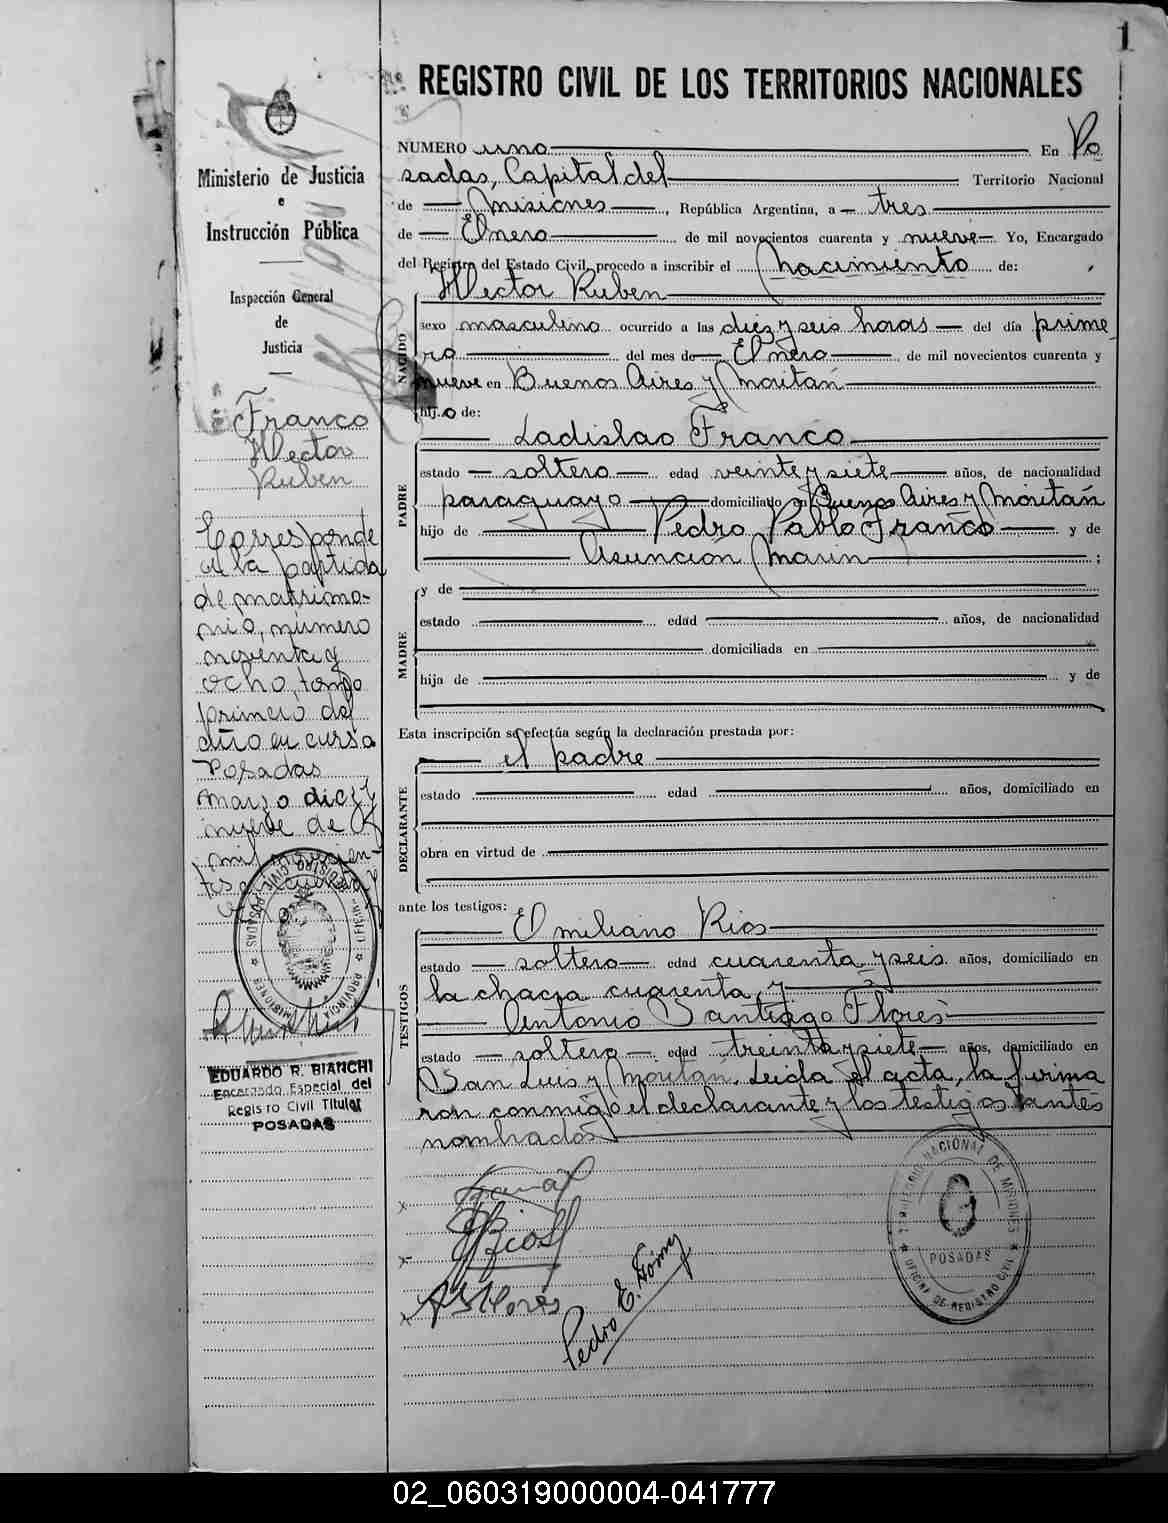 1
REGISTRO CIVIL DE LOS TERRITORIOS NACIONALES
Ministerio de Justicia
e
Instrucción Pública
Inspección General
de
Justicia
Franco
Hector
Ruben
Corresponde
a la partida
de matrimo-
nio, número
noventa y
ocho, tomo
primero del
año en curso
Posadas
marzo diez y
nueve de
mil novecien-
tos cuarenta y
EDUARDO R. BIANCHI
Encargado Especial del
Registro Civil Titular
POSADAS
NUMERO uno En Po
sadas, Capital del Territorio Nacional
de Misiones, República Argentina, a tres
de Enero de mil novecientos cuarenta y nueve Yo, Encargado
del Registro del Estado Civil, procedo a inscribir el nacimiento de:
NACIDO
Hector Ruben
sexo masculino ocurrido a las diez y seis horas del día prime
ro del mes de Enero de mil novecientos cuarenta y
nueve en Buenos Aires y Moritán
hijo de:
PADRE
Ladislao Franco
estado soltero edad veinte y siete años, de nacionalidad
paraguayo domiciliado en Buenos Aires y Moritán
hijo de Pedro Pablo Franco y de
Asunción Marin;
MADRE
y de
estado edad años, de nacionalidad
domiciliada en
hija de y de
Esta inscripción se efectúa según la declaración prestada por:
DECLARANTE
el padre
estado edad años, domiciliado en
obra en virtud de
ante los testigos:
TESTIGOS
Emiliano Rios
estado soltero edad cuarenta y seis años, domiciliado en
la chacra cuarenta, y
Antonio Santiago Flores
estado soltero edad treinta y siete años, domiciliado en
San Luis y Moritán. Leida el acta, la firma
ron conmigo el declarante y los testigos antes
nombrados
Rios
A S Flores
Pedro E.
TERRITORIO NACIONAL DE MISIONES
POSADAS
OFICINA DE REGISTRO CIVIL
02_060319000004-041777